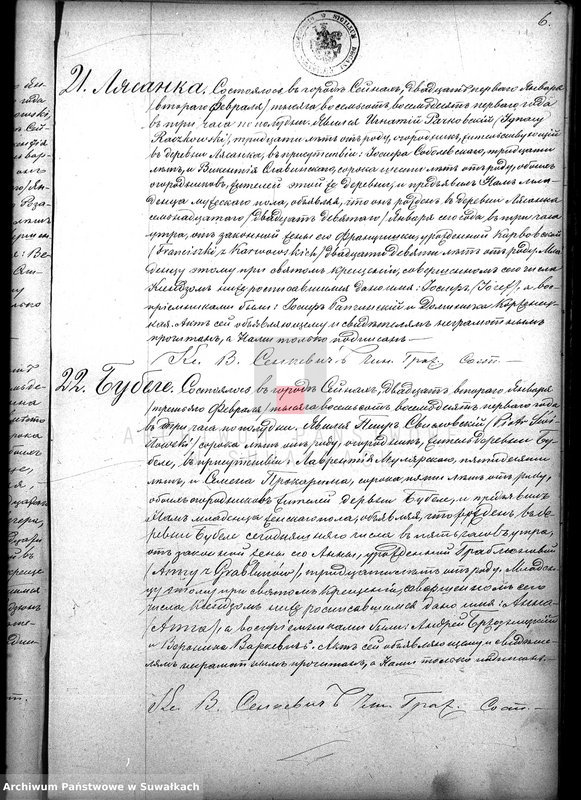 6.
21. Лясанка. Состоялось въ городѣ Сейнахъ, двадцать перваго Января
/втораго Февраля/ тысяча восемьсотъ восемьдесятъ перваго года
въ три часа по полудни. Явился Игнатій Рачковскій /Ignacy
Raczkowski/, тридцати лѣтъ отъ роду, огородникъ, жительствующій
въ деревни Лясанкѣ, въ присутствіи: Іосифа Соболевскаго, тридцати
лѣтъ, и Викентія Славинскаго, сорока шести лѣтъ отъ роду, обоихъ
огородниковъ, жителей этой же деревни, и предъявилъ Намъ мла-
денца мужескаго пола, объявляя, что онъ рожденъ въ деревни Лясанкѣ
семнадцатаго /двадцать девятаго/ Января сего года, въ три часа
утра, отъ законной жены его Францишки, урожденной Карвовской
/Franciszki z Karwowskich/ двадцати девяти лѣтъ отъ роду. Мла-
денцу этому при святомъ крещеніи, совершенномъ сего числа
Ксендзомъ ниже росписавшимся дано имя: Іосифъ /Józef/, а вос-
пріемниками были: Іосифъ и Доминика
Актъ сей объявляющему и свидѣтелямъ неграмотнымъ
прочитанъ, а Нами только подписанъ. —
Кс. В. Сенкевичъ Чин. Граж. Сост. —
22. Бубеле. Состоялось въ городѣ Сейнахъ, двадцать втораго Января
/третьяго Февраля/ тысяча восемьсотъ восемьдесятъ перваго года
въ три часа по полудни. Явился Петръ /Piotr
/ сорока лѣтъ отъ роду, огородникъ, житель деревни Бу-
беле, въ присутствіи: Лаврентія Мулярскаго, пятидесяти
лѣтъ, и Семена, сорока пяти лѣтъ отъ роду,
обоихъ огородниковъ, жителей деревни Бубеле, и предъявилъ
Намъ младенца женскаго пола, объявляя, что рожденъ въ де-
ревни Бубеле сегодняшняго числа въ пять часовъ утра,
отъ законной жены его Анны, урожденной
/Anny z /, тридцати лѣтъ отъ роду. Младен-
цу этому при святомъ крещеніи, совершенномъ сего
числа Ксендзомъ ниже росписавшимся дано имя: Анна
/Anna/, а воспріемниками были: Андрей
и Вероника. Актъ сей объявляющему и свидѣте-
лямъ неграмотнымъ прочитанъ, а Нами только подписанъ. —
Кс. В. Сенкевичъ Чин. Граж. Сост. —
Archiwum Państwowe w Suwałkach